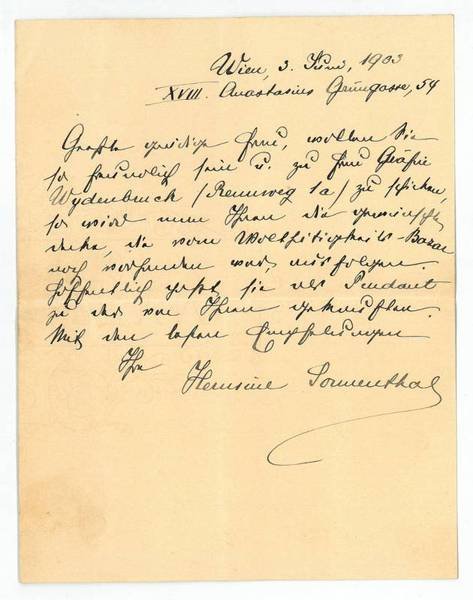 Wien, 3. Juni, 1903
XVIII. Anastasius Grüngasse, 54
Geehrte gnädige Frau, wollen Sie
so freundlich sein u. zu Frau Gräfin
Wydenbruck (Rennweg 1a) zu schicken,
so wird man Ihnen die gewünschte
Decke, die vom Wohltätigkeits-Bazar
noch vorhanden war, ausfolgen.
Hoffentlich paßt sie als Pendant
zu der von Ihnen gekauften.
Mit den besten Empfehlungen
Ihre
Hermine Sonnenthal